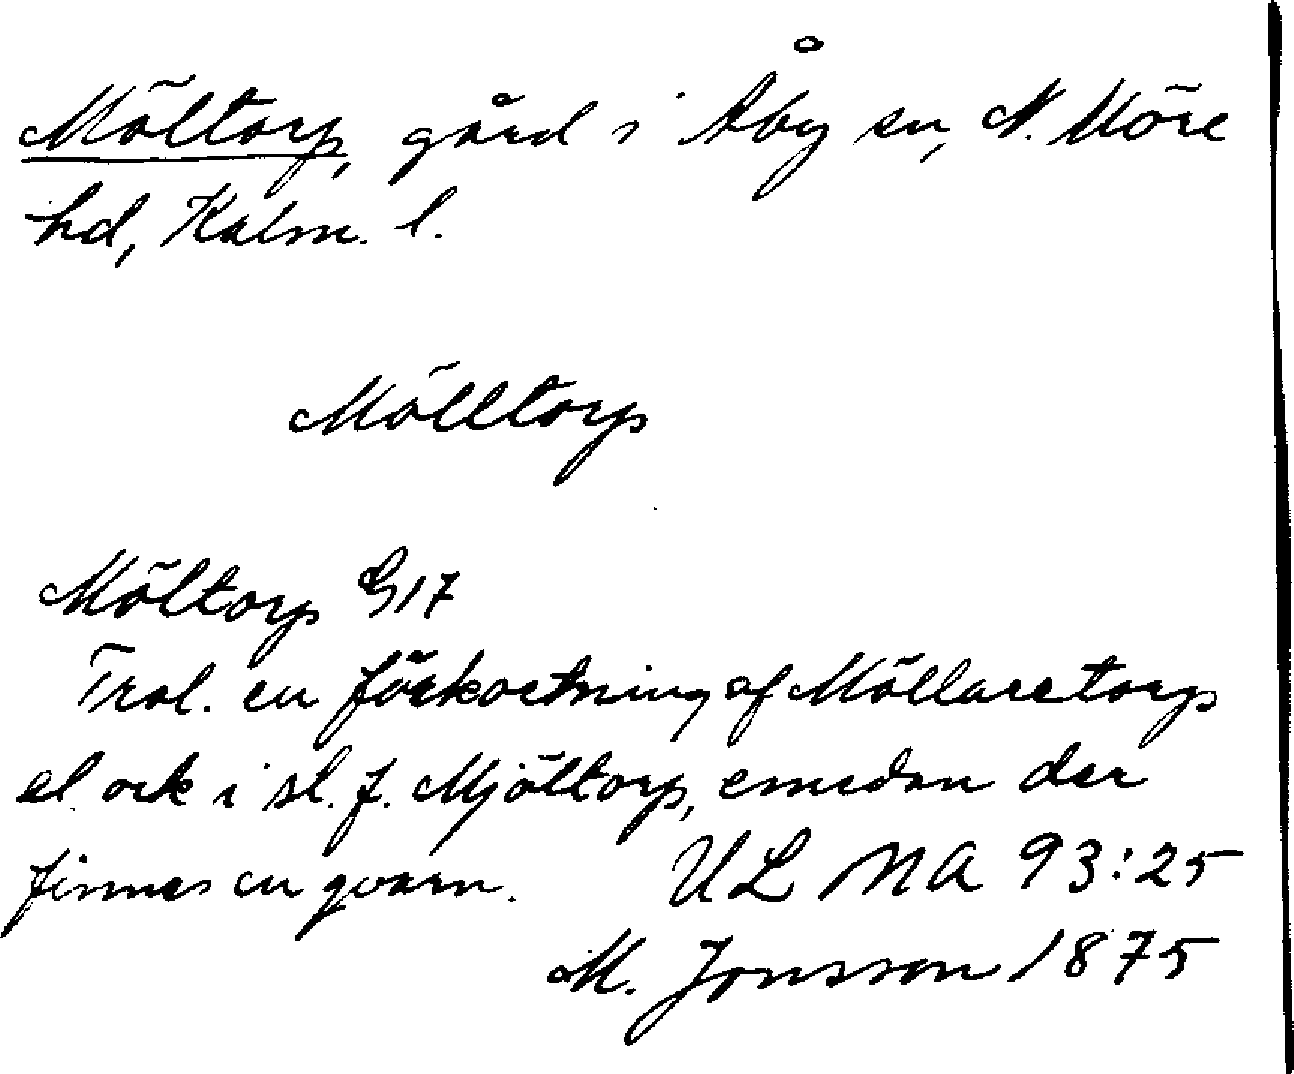 Möltorp, gård i Åby sn, N. Möre
hd, Kalm. l.
Mölltorp
Möltorp G17
Trol. en förkortning af Möllaretorp
el. ock i sl. f. Mjöltorp, emedan der
finnes en qvarn. ULMA 93:25
M. Jonsson 1875